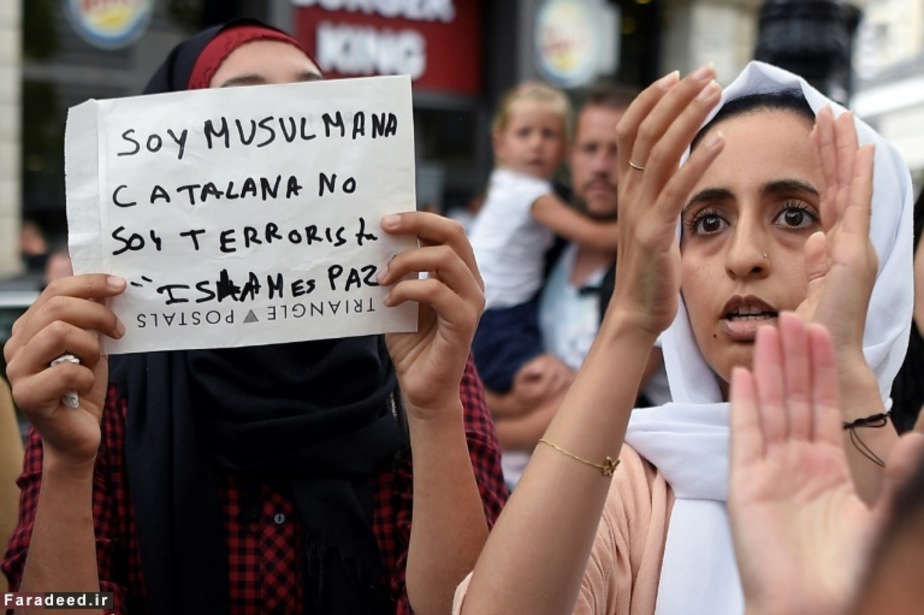 BURGER
KING
SOY MUSULMANA
CATALANA NO
SOY TERRORISta
ISLAM ES PAZ
TRIANGLE POSTALS
Faradeed.ir